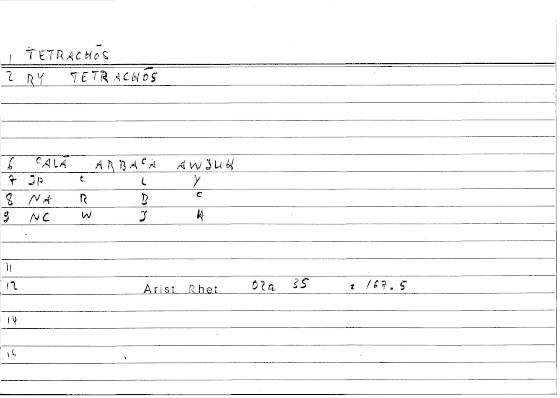 1 TETRACHŌS
2 RY TETRACHŌS
6 ᶜALĀ ARBAᶜA AWJUH
7 JP ᶜ L Y
8 NA R B ᶜ
9 NC W J H
11
12 Arist Rhet 02a 35 : 167.5
14